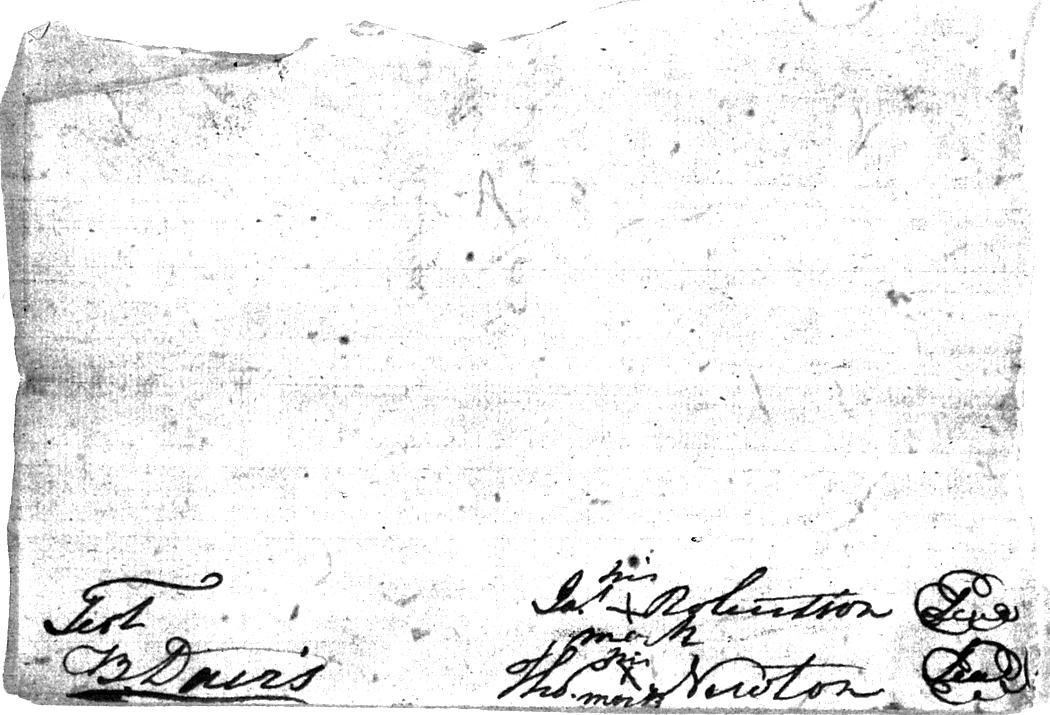 his
Test Jas. X Robertson Seal
mark
his
B Davis Tho. X Newton Seal
mark